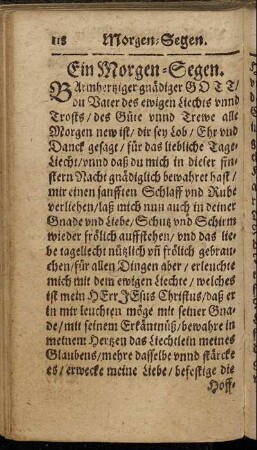 118 Morgen-Segen.
Ein Morgen-Segen.
BArmhertziger gnädiger GOTT/
du Vater des ewigen Liechts vnnd
Trosts/ des Güte vnnd Trewe alle
Morgen new ist/ dir sey Lob/ Ehr vnd
Danck gesagt/ für das liebliche Tage-
Liecht/ vnnd daß du mich in dieser fin-
stern Nacht gnädiglich bewahret hast/
mir einen sanfften Schlaff vnd Ruhe
verliehen/ laß mich nun auch in deiner
Gnade vnd Liebe/ Schutz vnd Schirm
wieder frölich auffstehen/ vnd das lie-
be tageliecht nützlich vñ frölich gebrau-
chen/ für allen Dingen aber/ erleuchte
mich mit dem ewigen Liechte/ welches
ist mein HErr JEsus Christus/ daß er
in mir leuchten möge mit seiner Gna-
de/ mit seinem Erkäntnüß/ bewahre in
meinem Hertzen das Liechtlein meines
Glaubens/ mehre dasselbe vnnd stärcke
es/ erwecke meine Liebe/ befestige die
Hoff-